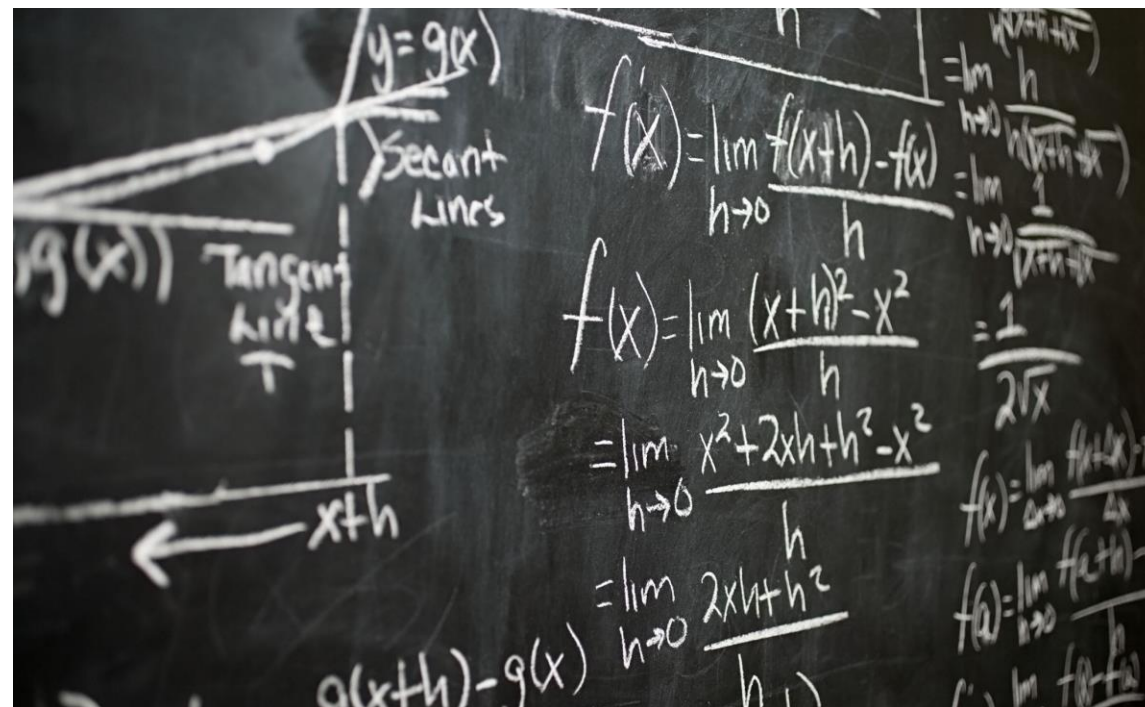 y=g(x)
Secant
Lines
g(x))
Tangent
Line
T
x+h
g(x+h)-g(x)
h
f'(x)=lim h→0 f(x+h)-f(x) / h
f(x)=lim h→0 (x+h)²-x² / h
=lim h→0 x²+2xh+h²-x² / h
=lim h→0 2xh+h² / h
=lim h→0 h / h(√x+h+√x)
=lim h→0 1 / √x+h+√x
=1 / 2√x
f(x)=lim Δx→0 f(x+Δx)- / Δx
f(a)=lim h→0 f(a+h)- / h
lim f(